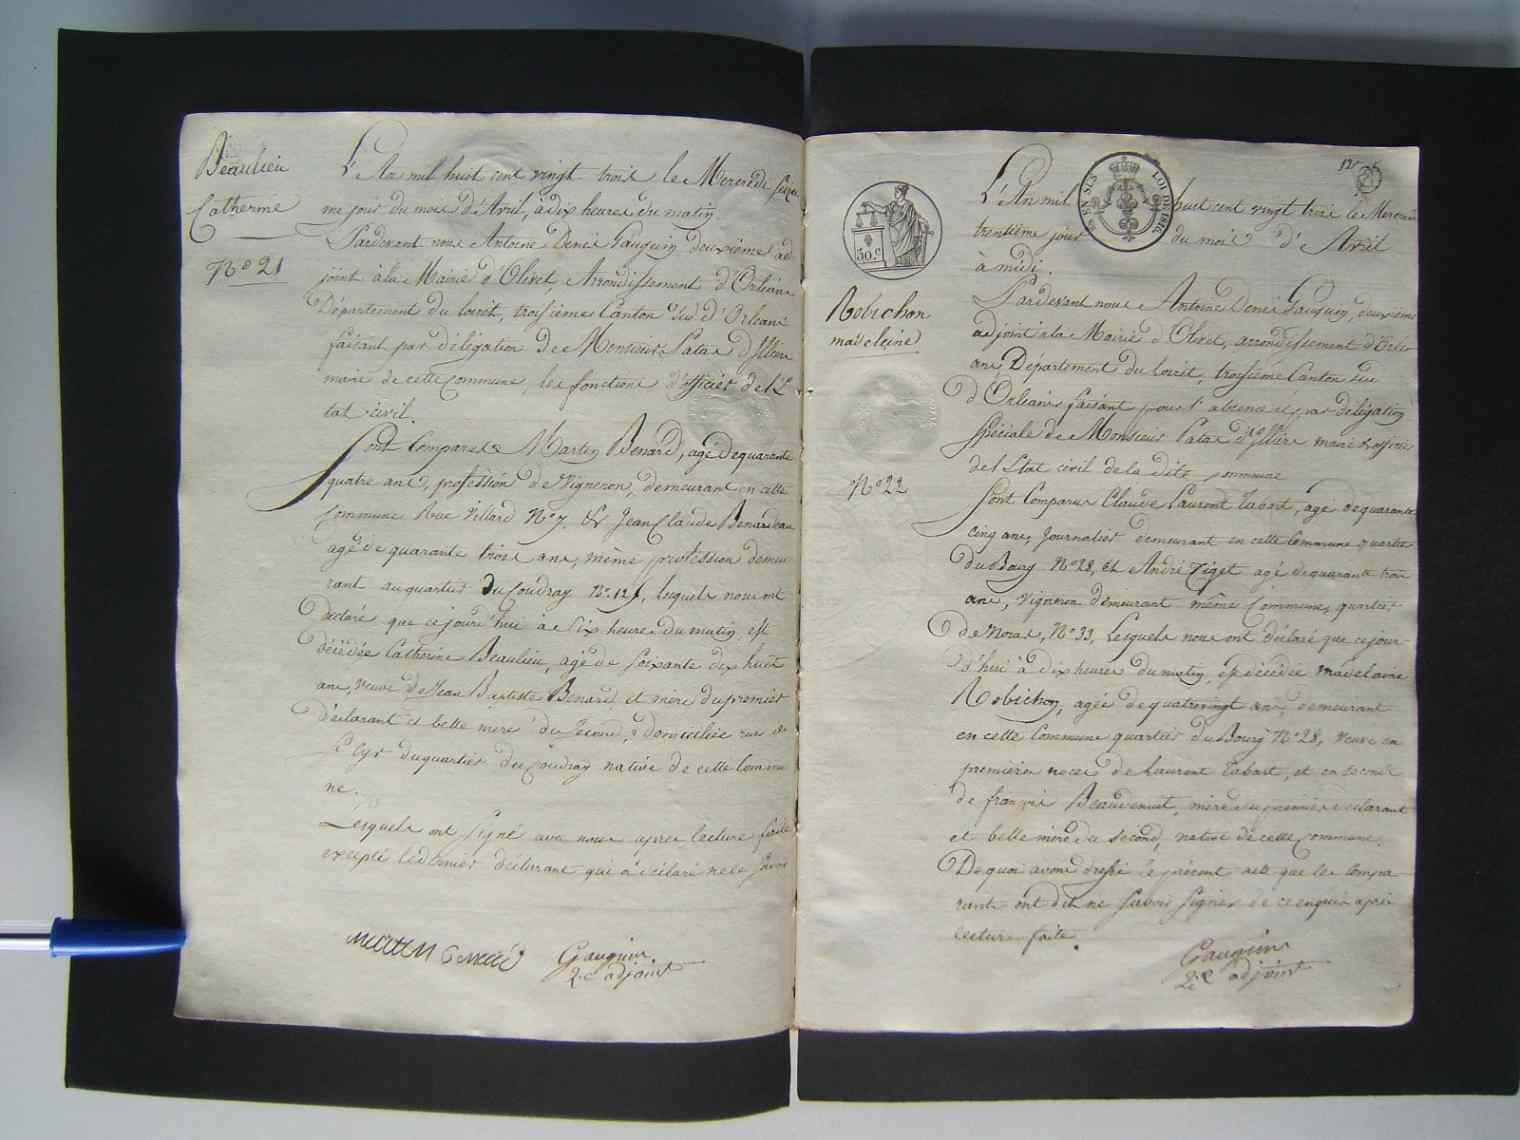 Beaulieu
Catherine
N.o 21
L'An mil huit cent vingt trois le Mercredi seizie
me jour du mois d'Avril, à dix heures du matin.
Pardevant nous Antoine Denis Gauguin deuxième ad
joint à la Mairie d'Olivet, Arrondissement d'Orléans
Département du loiret, troisième Canton Sud d'Orléans
faisant par délégation de Monsieur
maire de cette Commune, les fonctions d'officier de l'E
tat civil.
Sont Comparus Martin Benard, agé de quarante
quatre ans, profession de Vigneron, demeurant en cette
Commune Rue Villard N.o 7. & Jean Claude Benardeau
agé de quarante trois ans, même profession demeu
rant au quartier du Coudray N.o, lesquels nous ont
déclaré que cejourd'hui à Six heures du matin, est
décédée Catherine Beaulieu, agée de soixante dix huit
ans, veuve de Jean Baptiste Benard, et mère du premier
déclarant et belle mere du second, domiciliée rue de
du quartier du Coudray native de cette Commu
ne.
Lesquels ont Signé avec nous après lecture faite
excepté le dernier déclarant qui a déclaré ne le savoir
Gauguin
2.e adjoint
50.c
EN SUS
LOI DE 1816
Robichon
madeleine
N.o 22
L'An mil huit cent vingt trois le Mercredi
trentième jour du mois d'Avril
à midi.
Pardevant nous Antoine Denis Gauguin, deuxième
adjoint à la Mairie d'Olivet, arrondissement d'Orlé
ans, Département du loiret, troisième Canton Sud
d'Orléans faisant pour l'absence et par délégation
spéciale de Monsieur maire & officier
de l'Etat civil de la dite commune
Sont Comparus Claude Laurent Tabart, agé de quarante
cinq ans, Journalier demeurant en cette Commune quartier
du Bourg N.o 28, Et André Ziget agé de quarante trois
ans, Vigneron demeurant même Commune, quartier
de N.o 33, Lesquels nous ont déclaré que cejour
d'hui à dix heures du matin, est décédée madelaine
Robichon, agée de quatrevingt ans, demeurant
en cette Commune quartier du Bourg N.o 28, veuve en
premières noces de Laurent Tabart, et en seconde
de françois Beaudenuit, mère du premier déclarant
et belle mère du second, native de cette commune.
De quoi avons dressé le présent acte que les compa
rants ont dit ne savoir signer de ce enquis après
lecture faite.
Gauguin
2.e adjoint